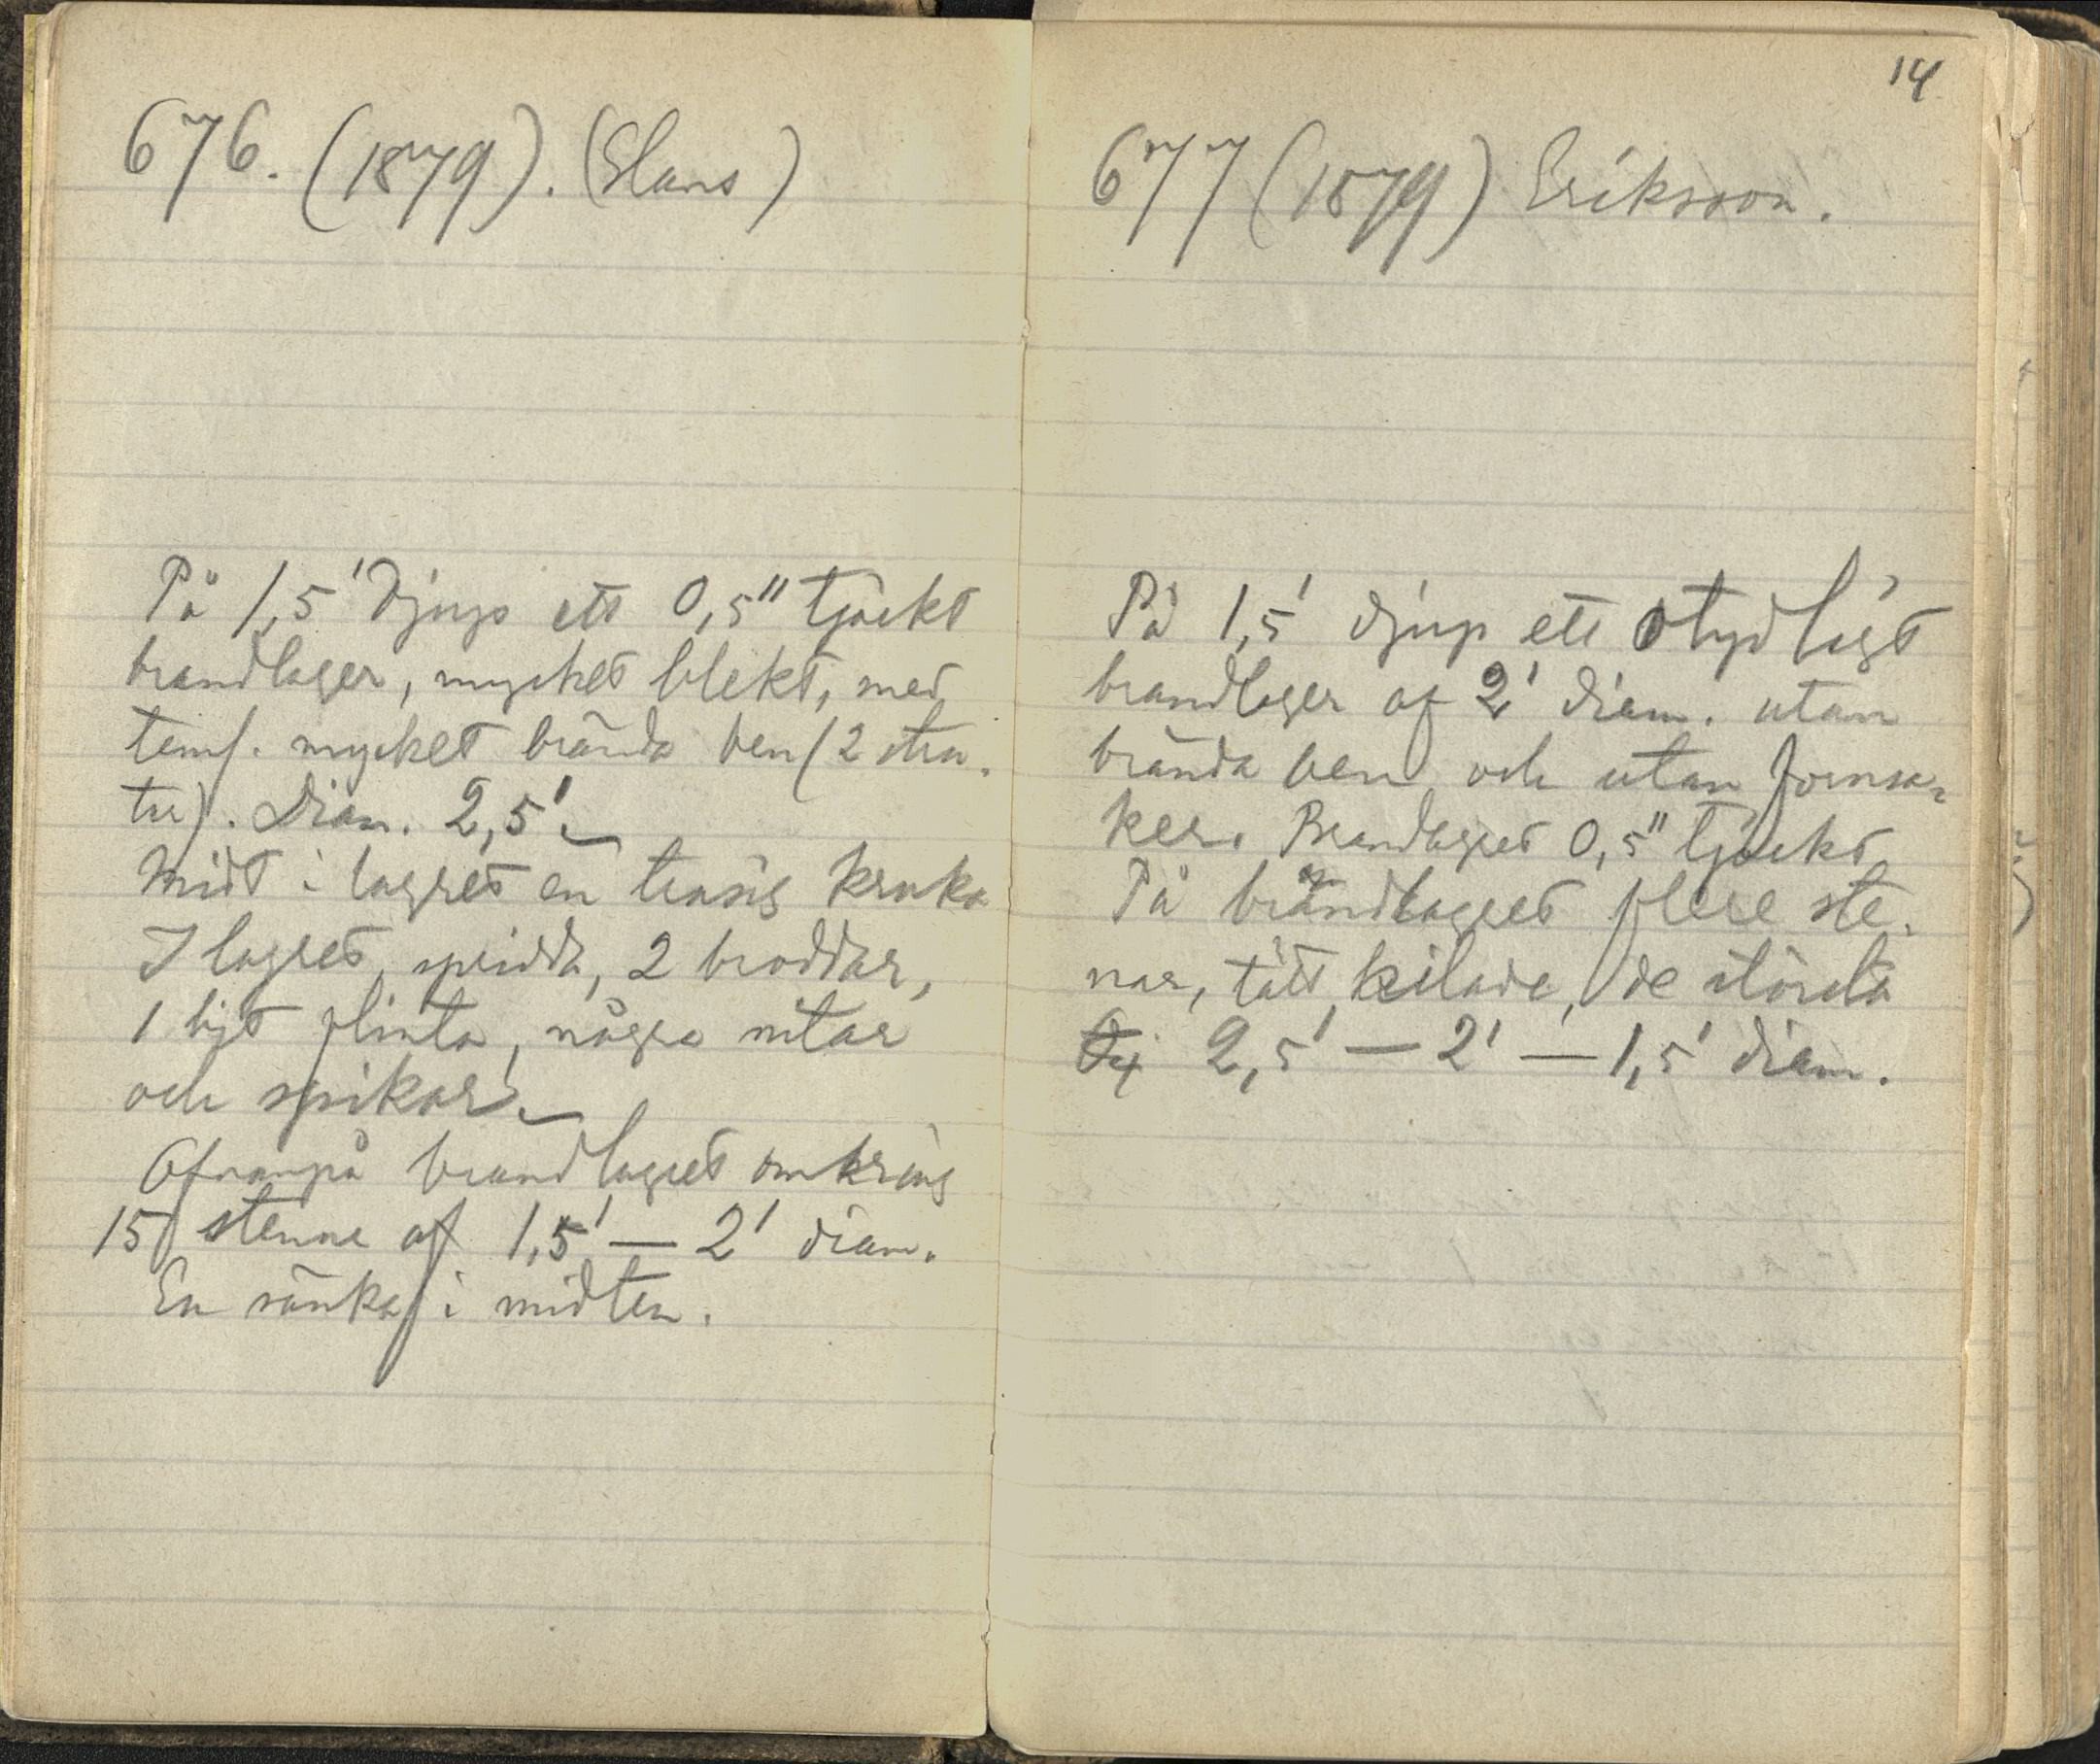 676. (1879). (Hans)
På 1,5' djup ett 0,5" tjockt
brandlager, mycket blekt, med
teml. mycket brända ben (2 stru.
tar). Diam. 2,5'.
Midt i lagret en trasig kruka
I lagret, spridda, 2 broddar,
1 bit flinta, några nitar
och spikar.
Ofvanpå brandlagret omkring
15 stenar af 1,5' — 2' diam.
En sänka i midten.
14
677 (1879) Eriksson.
På 1,5' djup ett otydligt
brandlager af 2' diam. utan
brända ben och utan fornsa-
ker. Brandlagret 0,5" tjockt
På brandlagret flere ste-
nar, tätt kilade, de största
2,5' — 2' — 1,5' diam.